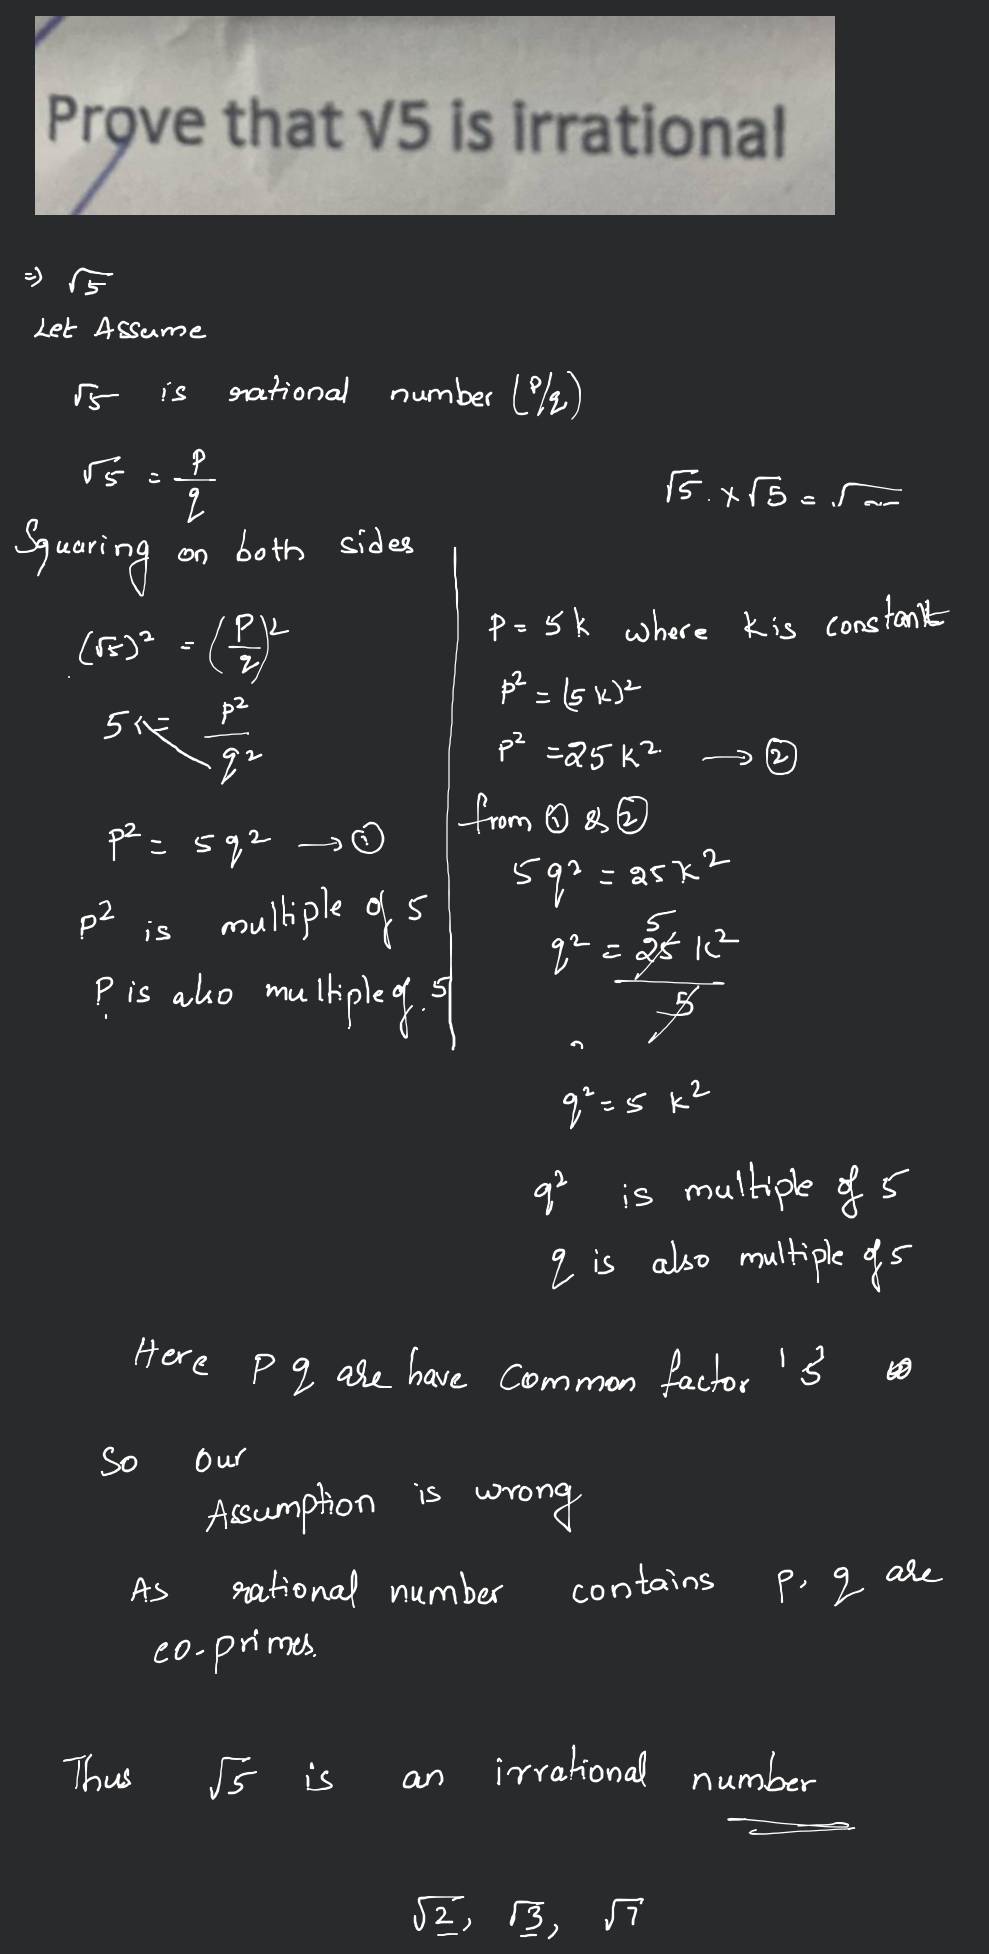 Prove that √5 is irrational
⇒ √5
Let Assume
√5 is rational number (P/q)
√5 = P/q
√5 . x √5 = √
Squaring on both sides
(√5)² = (P/q)²
5 = P²/q²
P² = 5q² → ①
P² is multiple of 5
P is also multiple of 5
P = 5k where k is constant
P² = (5k)²
P² = 25k² → ②
from ① & ②
5q² = 25k²
q² = 25k²/5
5
q² = 5k²
q² is multiple of 5
q is also multiple of 5
Here P q are have common factor '5'
So our
Assumption is wrong
As rational number contains p, q are
co-primes.
Thus √5 is an irrational number
√2, √3, √7